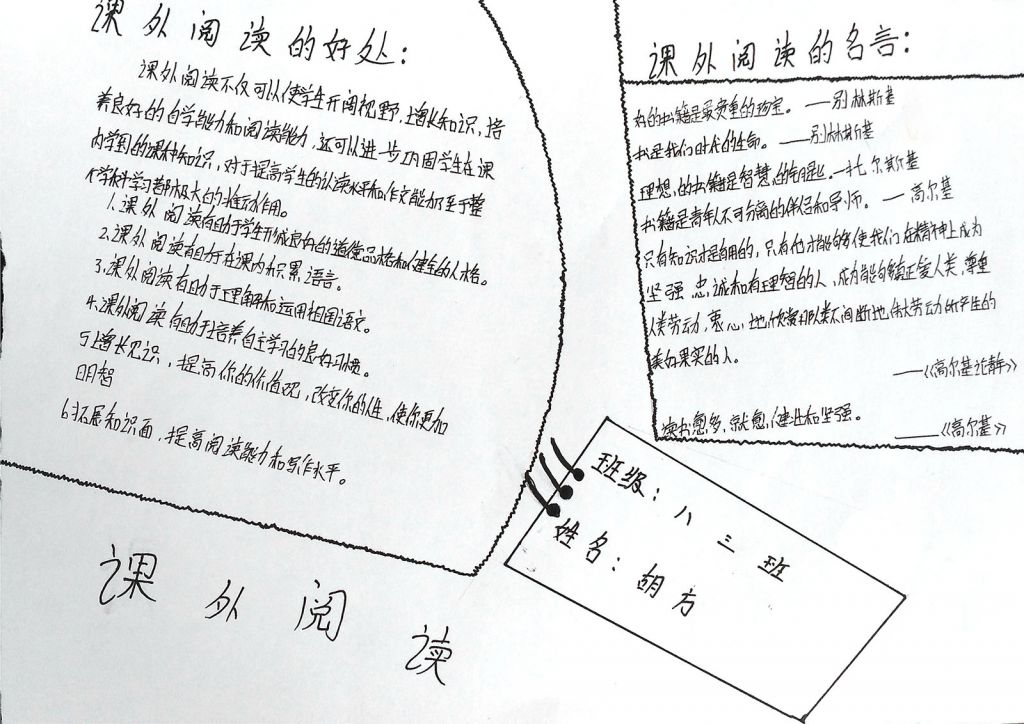 课外阅读的好处：
课外阅读不仅可以使学生开阔视野，增长知识，培
养良好的自学能力和阅读能力，还可以进一步巩固学生在课
内学到的课种知识，对于提高学生的认读水平和作文能力乃至于整
个学科学习都极大的推动作用。
1.课外阅读有助于学生形成良好的道德品格和健全的人格。
2.课外阅读有助于在课内积累语言。
3.课外阅读有助于理解和运用祖国语文。
4.课外阅读有助于培养自主学习的良好习惯。
5.增长见识，提高你的价值观，改变你的人性，使你更加
明智
6.拓展知识面，提高阅读能力和写作水平。
课外阅读的名言：
的书籍是最贵重的珍宝。——别林斯基
书是我们时代的生命。——别林斯基
理想的书籍是智慧的钥匙。—托尔斯基
书籍是青年人不可分离的伴侣和导师。——高尔基
只有知识才是有用的，只有它才能够使我们在精神上成为
坚强忠诚和有理智的人，成为能够真正爱人类，尊重
人类劳动，衷心地欣赏那人类不间断地伟大劳动所产生的
美好果实的人。
——《高尔基论青年》
读书愈多，就愈健壮和坚强。
——《高尔基》
班级：八三班
姓名：胡方
课外阅读